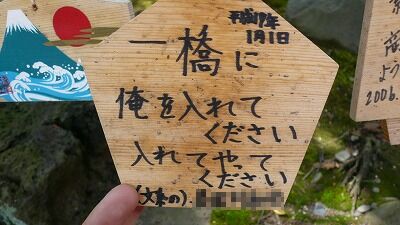 平成17年
1月1日
一橋に
俺を入れて
ください
入れてやって
ください
2006.